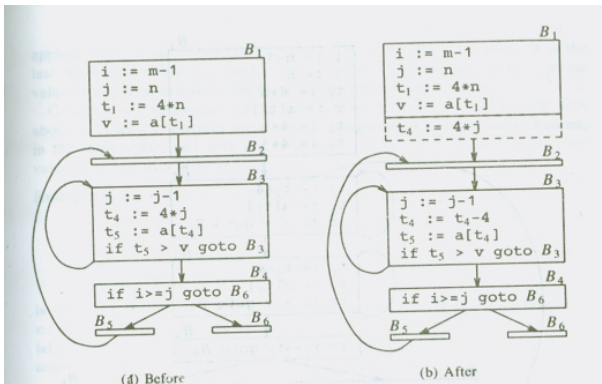 B₁
i := m-1
j := n
t₁ := 4*n
v := a[t₁]
B₂
B₃
j := j-1
t₄ := 4*j
t₅ := a[t₄]
if t₅ > v goto B₃
B₄
if i>=j goto B₆
B₅
B₆
(a) Before
B₁
i := m-1
j := n
t₁ := 4*n
v := a[t₁]
t₄ := 4*j
B₂
B₃
j := j-1
t₄ := t₄-4
t₅ := a[t₄]
if t₅ > v goto B₃
B₄
if i>=j goto B₆
B₅
B₆
(b) After